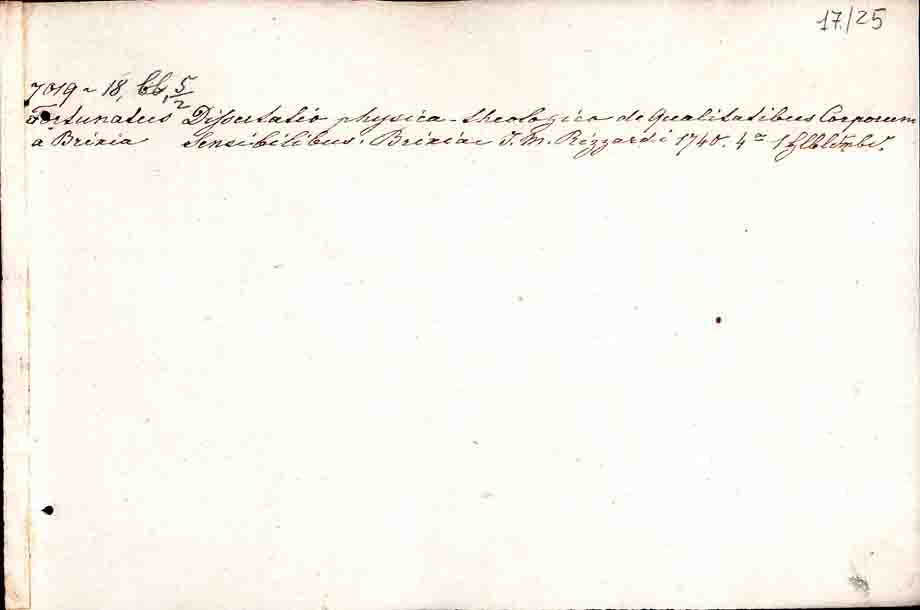 17./25
7019 ~ 18, bb, 5/2
Fortunatus Dissertatio physica-theologica de Qualitatibus Corporum
a Brixia Sensibilibus. Brixiae J. M. Rizzardi 1740. 4º 1